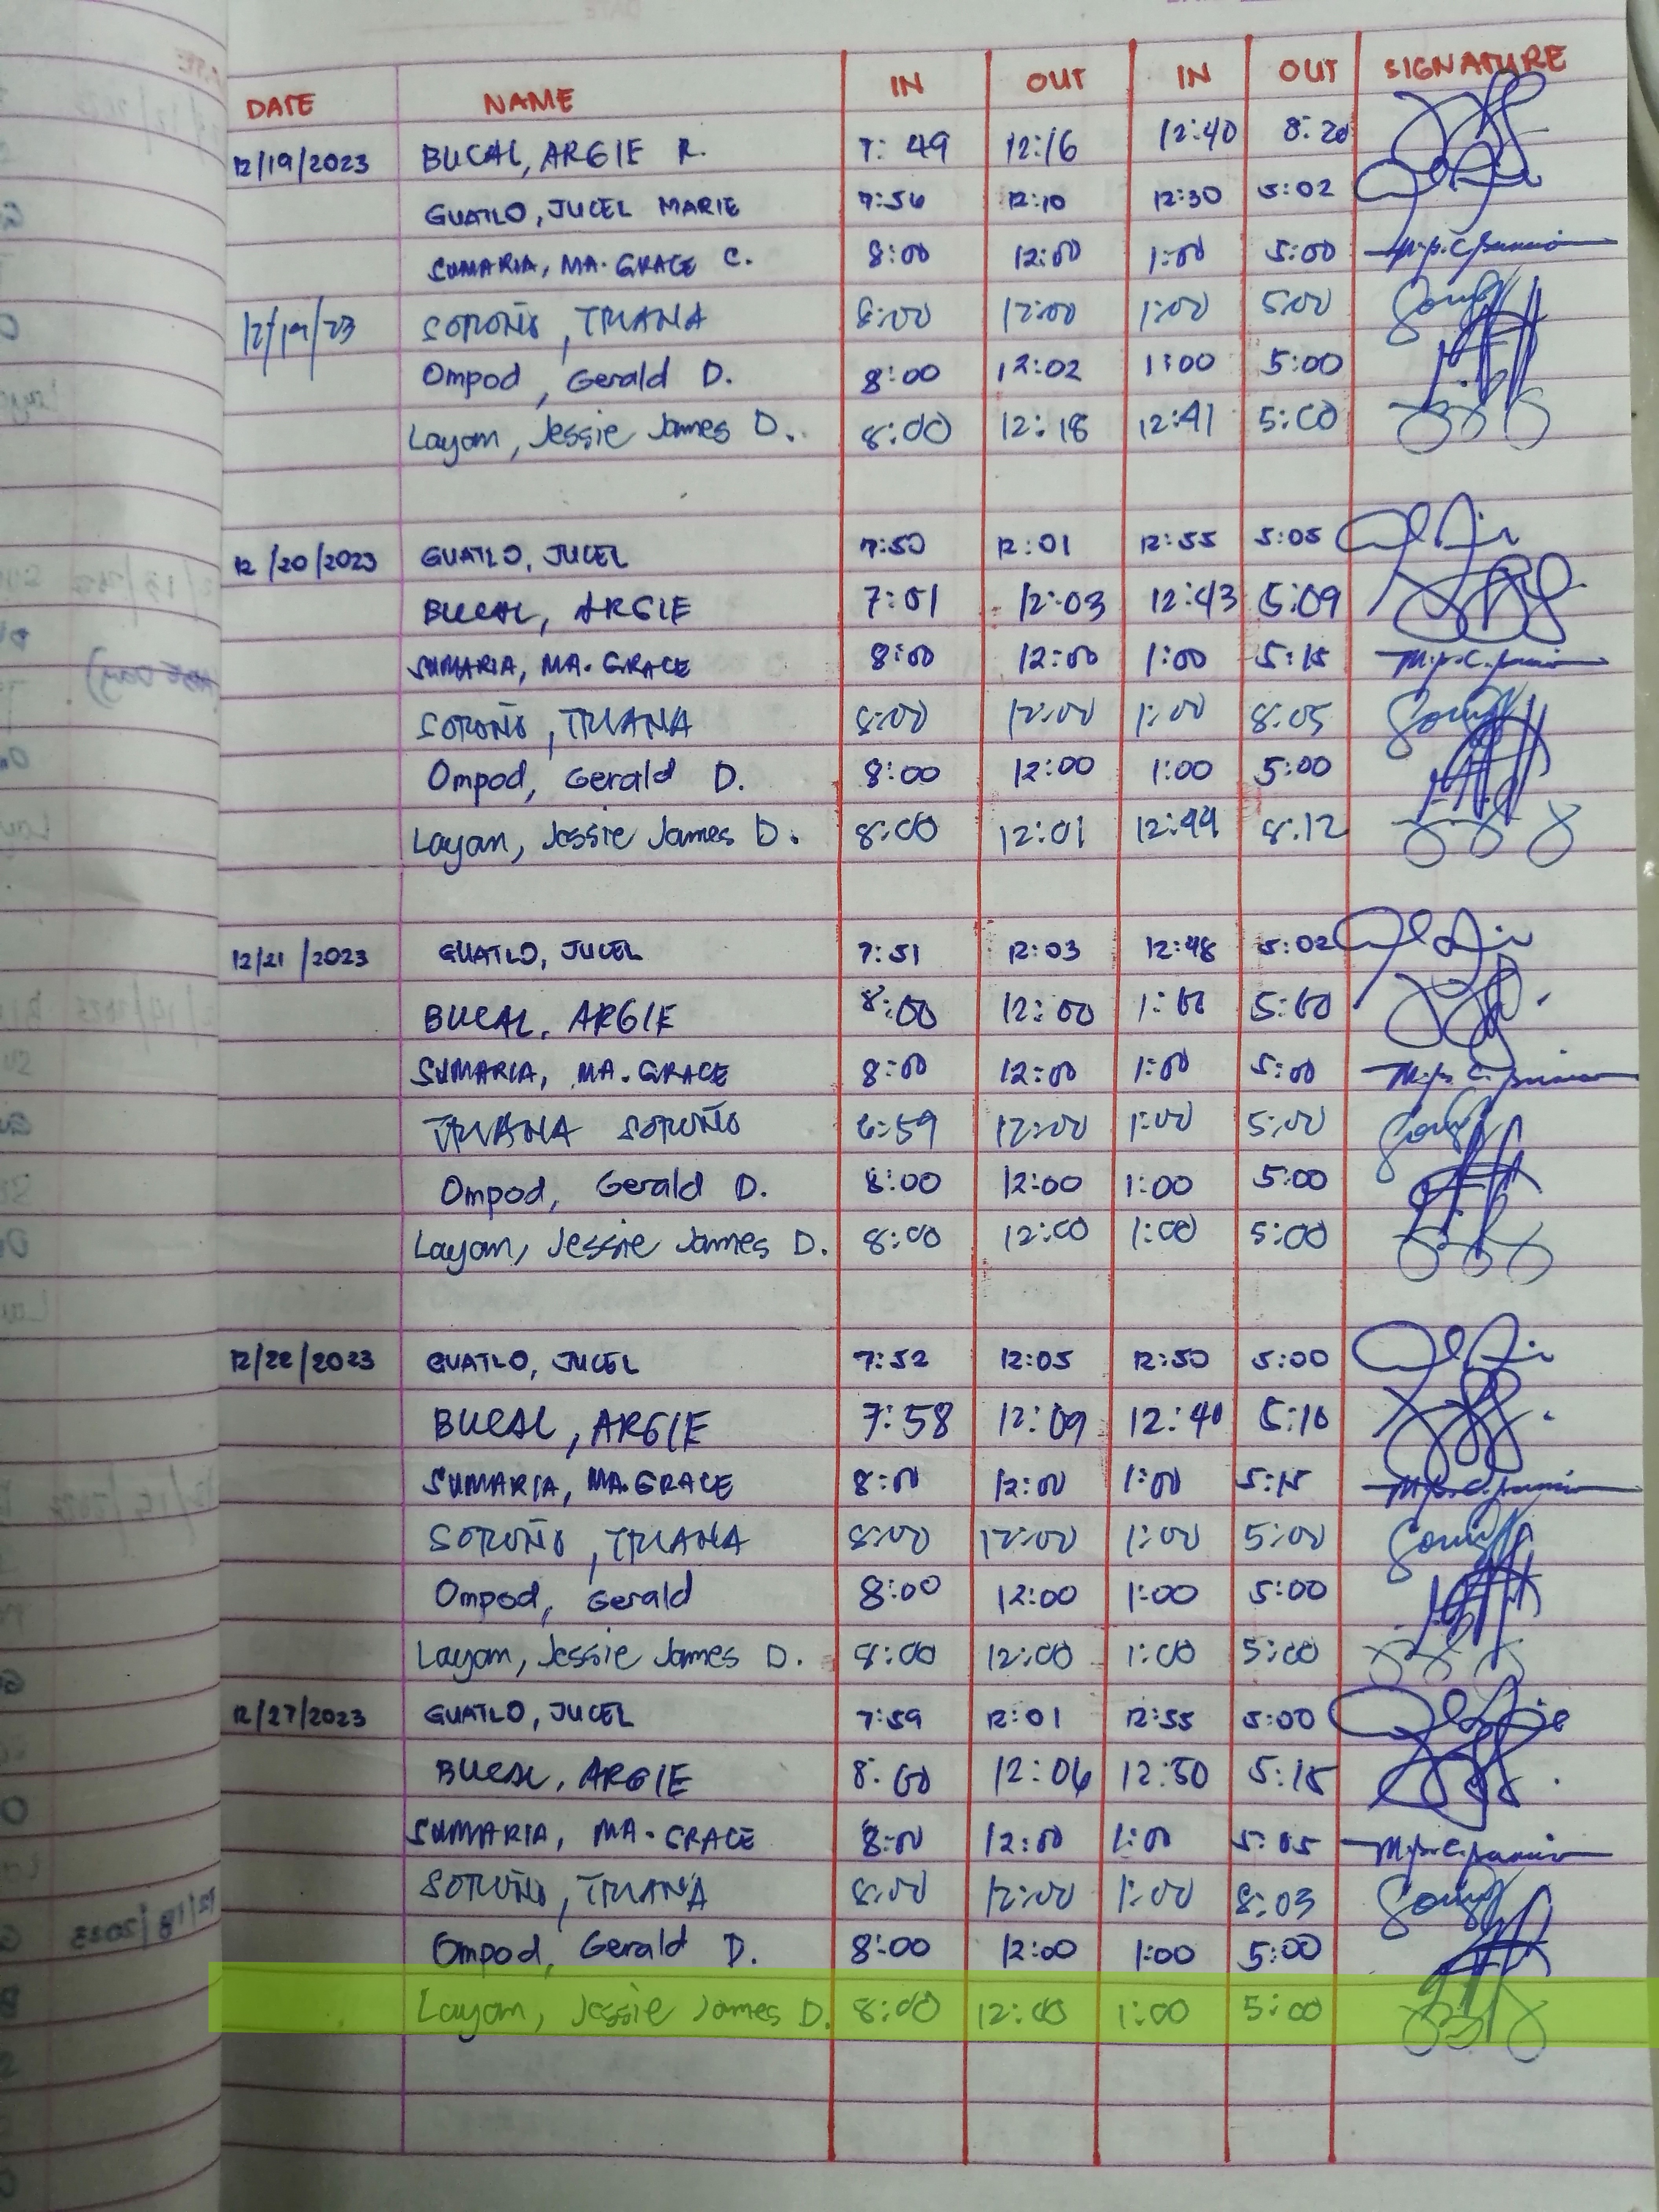 DATE NAME IN OUT IN OUT SIGNATURE
12/19/2023 BUCAL, ARGIE R. 7:49 12:16 12:40 8:20
GUATLO, JUCEL MARIE 7:56 12:10 12:30 5:02
SUMARIA, MA. GRACE C. 8:00 12:00 1:00 5:00
12/19/23 SOROÑO, TRIANA 8:00 12:00 1:00 5:00
Ompod, Gerald D. 8:00 12:02 1:00 5:00
Layam, Jessie James D. 8:00 12:18 12:41 5:00
12/20/2023 GUATLO, JUCEL 7:50 12:01 12:55 5:05
BUCAL, ARGIE 7:51 12:03 12:43 5:09
SUMARIA, MA. GRACE 8:00 12:00 1:00 5:15
SOROÑO, TRIANA 8:00 12:00 1:00 8:05
Ompod, Gerald D. 8:00 12:00 1:00 5:00
Layam, Jessie James D. 8:00 12:01 12:44 8:12
12/21/2023 GUATLO, JUCEL 7:51 12:03 12:48 5:02
BUCAL, ARGIE 8:00 12:00 1:00 5:00
SUMARIA, MA. GRACE 8:00 12:00 1:00 5:00
TRIANA SOROÑO 6:59 12:00 1:00 5:00
Ompod, Gerald D. 8:00 12:00 1:00 5:00
Layam, Jessie James D. 8:00 12:00 1:00 5:00
12/22/2023 GUATLO, JUCEL 7:52 12:05 12:50 5:00
BUCAL, ARGIE 7:58 12:09 12:40 5:10
SUMARIA, MA. GRACE 8:00 12:00 1:00 5:15
SOROÑO, TRIANA 8:00 12:00 1:00 5:00
Ompod, Gerald 8:00 12:00 1:00 5:00
Layam, Jessie James D. 8:00 12:00 1:00 5:00
12/27/2023 GUATLO, JUCEL 7:59 12:01 12:55 5:00
BUCAL, ARGIE 8:00 12:06 12:50 5:15
SUMARIA, MA. GRACE 8:00 12:00 1:00 5:05
SOROÑO, TRIANA 8:00 12:00 1:00 8:03
Ompod, Gerald D. 8:00 12:00 1:00 5:00
Layam, Jessie James D. 8:00 12:00 1:00 5:00